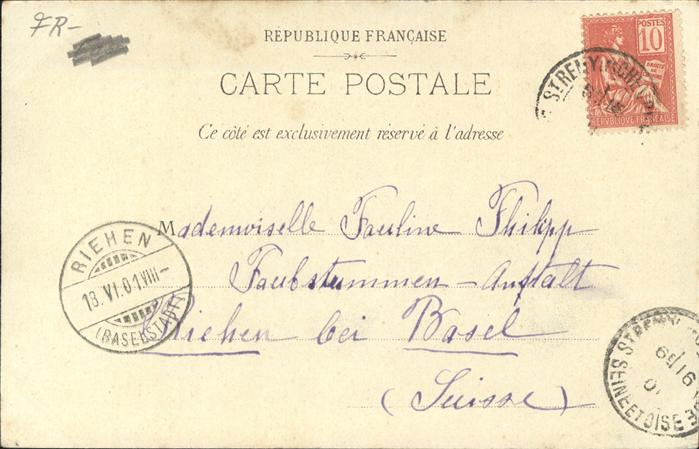 FR-
RÉPUBLIQUE FRANÇAISE
CARTE POSTALE
Ce côté est exclusivement réservé à l'adresse
POSTES
10
RÉPUBLIQUE FRANÇAISE
ST REMY
Mademoiselle Pauline Philipp
Taubstummen-Anstalt
Riehen bei Basel
(Suisse)
RIEHEN
13.VI.01.VIII-
(BASELSTADT)
ST REMY
SEINE ET OISE